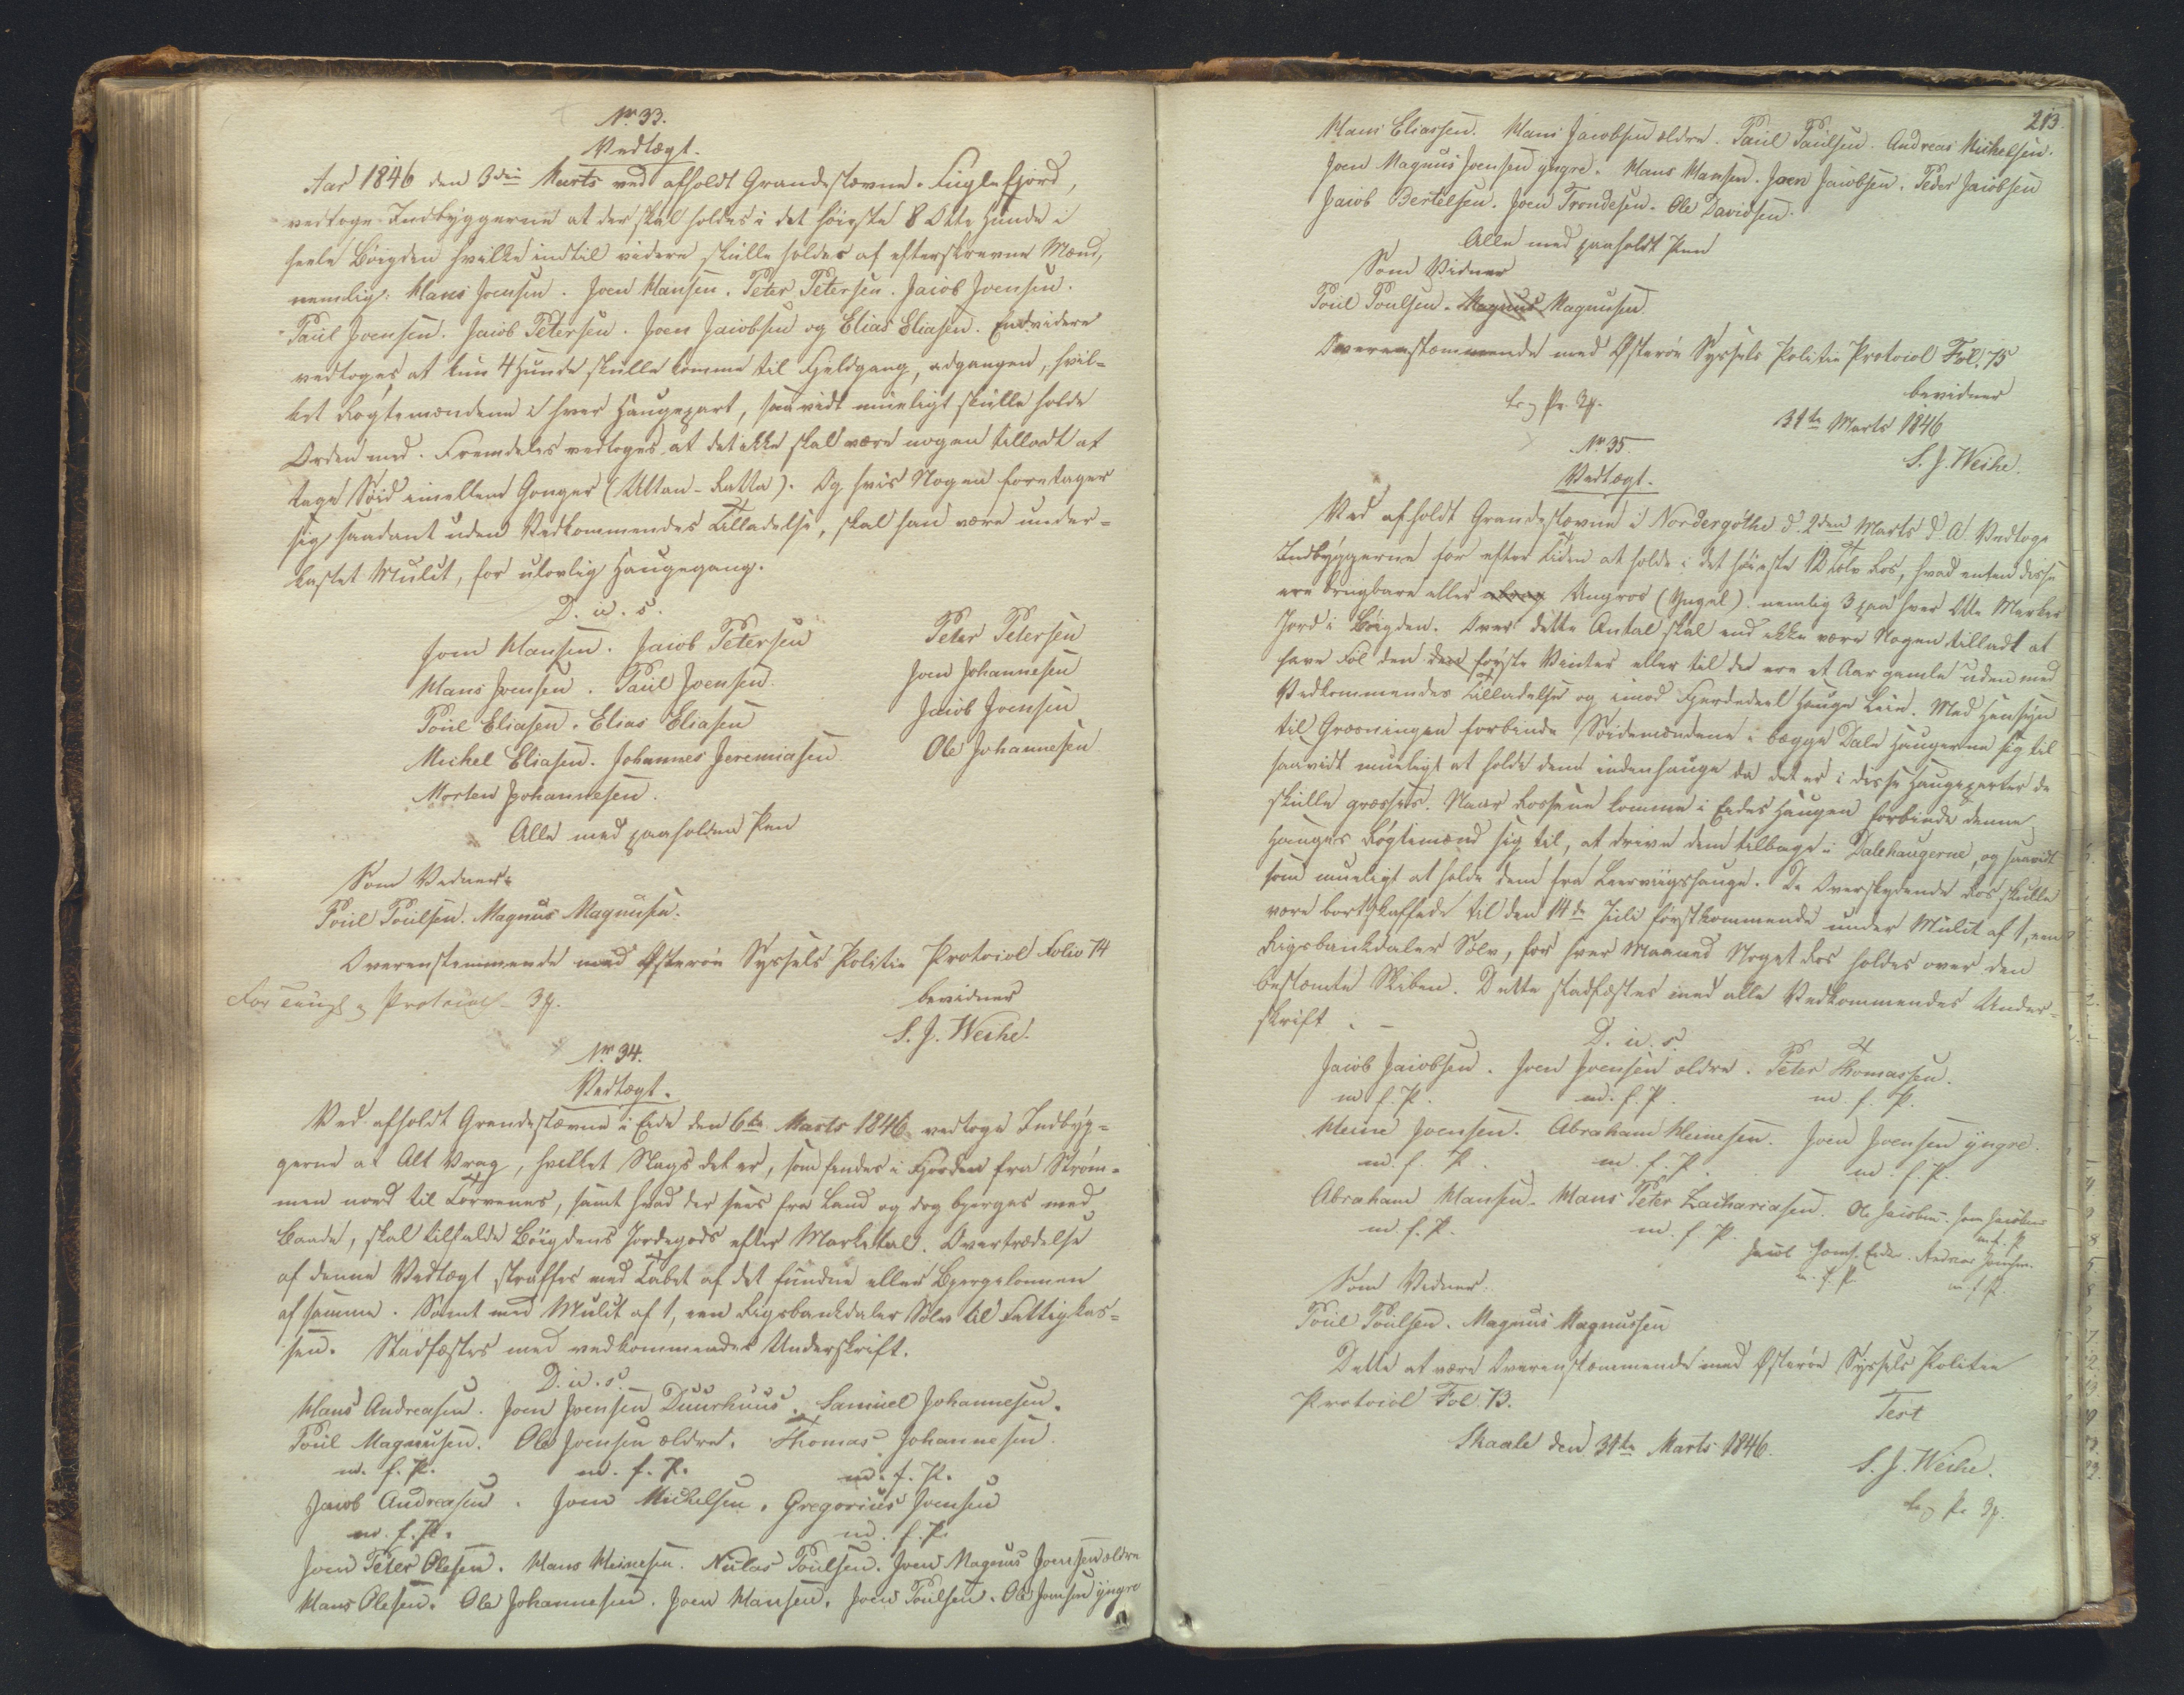 Nr 33.
Vedtægt.
Aar 1846 den 3die Marts ved afholdt Grandestævne. Fuglefjord,
vedtoge Indbyggerne at der skal holdes i det høieste 8 Otte Hunde i
heele Bøigden hvilke indtil videre skulle holdes af efterskrevne Mænd,
nemlig: Hans Joensen. Joen Hansen. Peter Petersen. Jacob Joensen.
Paul Joensen. Jacob Petersen. Joen Jacobsen og Elias Eliasen. Endvidere
vedtoges at kun 4 Hunde skulle komme til Fjeldgang, adgangen, hvil-
ket Røgtemændene i hver Haugepart, saavidt mueligt skulle holde
Orden med. Fremdeles vedtoges at det ikke skal være nogen tilladt at
tage Søid imellem Gonger (Uttan-Ratta). Og hvis Nogen foretager
sig saadant uden Vedkommendes Tilladelse, skal han være under-
kastet Mulct, for ulovlig Haugegang.
D. u. s.
Joen Hansen. Jacob Petersen Peter Petersen
Hans Joensen. Paul Joensen. Joen Johannesen
Poul Eliasen. Elias Eliasen Jacob Joensen
Michel Eliasen. Johannes Jeremiasen. Ole Johannesen
Morten Johannesen.
Alle med paaholden Pen
Som Vidner:
Poul Poulsen. Magnus Magnusen.
Overenstemmende med Østerøe Syssels Politie Protocol Folio 74
bevidner
For Tingl. & Protocol 3ß.
S. J. Weihe.
Nr 34.
Vedtægt.
Ved afholdt Grandestævne i Eide den 6te Marts 1846 vedtoge Indbyg-
gerne at Alt Vrag, hvilket Slags det er, som findes i Fjorden fra Strøm-
men nord til Torvenes, samt hvad der sees fra Land og dog bjerges med
Baade, skal tilfalde Bøigdens Jordegods efter Marketal. Overtrædelse
af denne Vedtægt straffes med Tabet af det fundne eller Bjergelønnen
af samme. Samt med Mulct af 1, een Rigsbankdaler Sølv til Fattigkas-
sen. Stadfæstes med vedkommendes Underskrift.
D. u. s.
Hans Andreasen. Joen Joensen Duurhuus. Samuel Johannesen.
Poul Magnusen. Ole Joensen ældre. Thomas Johannesen.
m. f. P. m. f. P. m. f. P.
Jacob Andreasen. Joen Michelsen. Gregorius Joensen
m. f. P. m. f. P.
Joen Peter Olesen. Hans Heinesen. Niclas Poulsen. Joen Magnus Joensen ældre
Hans Olesen. Ole Johannesen. Joen Hansen. Joen Poulsen. Ole Joensen yngre
213.
Hans Eliassen. Hans Jacobsen ældre. Paul Paulsen. Andreas Michelsen.
Joen Magnus Joensen yngre. Hans Hansen. Joen Jacobsen. Peder Jacobsen
Jacob Bertelsen. Joen Trondesen. Ole Davidsen.
Alle med paaholdt Pen
Som Vidner
Poul Poulsen. Magnus Magnusen
Overenstemmende med Østerøe Syssels Politie Protocol Fol. 75
bevidner
31te Marts 1846
S. J. Weihe.
Nr 35.
Vedtægt.
Ved afholdt Grandestævne i Nordergøthe d. 2den Marts d. A. Vedtoge
Indbyggerne for efter Tiden at holde i det høieste 12 Tolv Ros, hvad enten disse
ere brugbare eller Ungros (Yngel) nemlig 3 paa hver Otte Marker
Jord i Bøigden. Over dette Antal skal end ikke være Nogen tilladt at
have Føl den den første Vinter eller til det ere et Aar gamle uden med
Vedkommendes Tilladelse og imod Fjerdedeel Hauge Leie. Med Hensyn
til Græsningen forbinde Søidemændene i begge Dale Haugerne sig til
saavidt mueligt at holde dem indenhauge da det er i disse Haugeparter de
skulle græsses. Naar Rossene komme i Eides Haugen forbinde denne
Hauges Røgtemænd sig til, at drive dem tilbage i Dalehaugerne, og saavidt
som mueligt at holde dem fra Leervigshauge. De Overskydende Ros skulle
være bortskaffede til den 14de Juli førstkommende under Mulct af 1, een
Rigsbankdaler Sølv, for hver Maaned Noget Ros holdes over den
bestemte Skiben. Dette stadfæstes med alle Vedkommendes Under-
skrift.
D. u. s.
Jacob Jacobsen. Joen Joensen ældre. Peter Thomassen.
m. f. P. m. f. P. m. f. P.
Heine Joensen. Abraham Heinesen. Joen Joensen yngre.
m. f. P. m. f. P. m. f. P.
Abraham Hansen. Hans Peter Zachariasen. Ole Jacobsen. Joen Jacobsen
m. f. P. m. f. P. m. f. P.
Jacob Joens. Eide. Andreas Joensen.
m. f. P. m. f. P.
Som Vidner.
Poul Poulsen. Magnus Magnussen
Dette at være Overenstemmende med Østerøe Syssels Politie
Protocol Fol. 73. Test
Skaale den 31te Marts 1846.
S. J. Weihe.